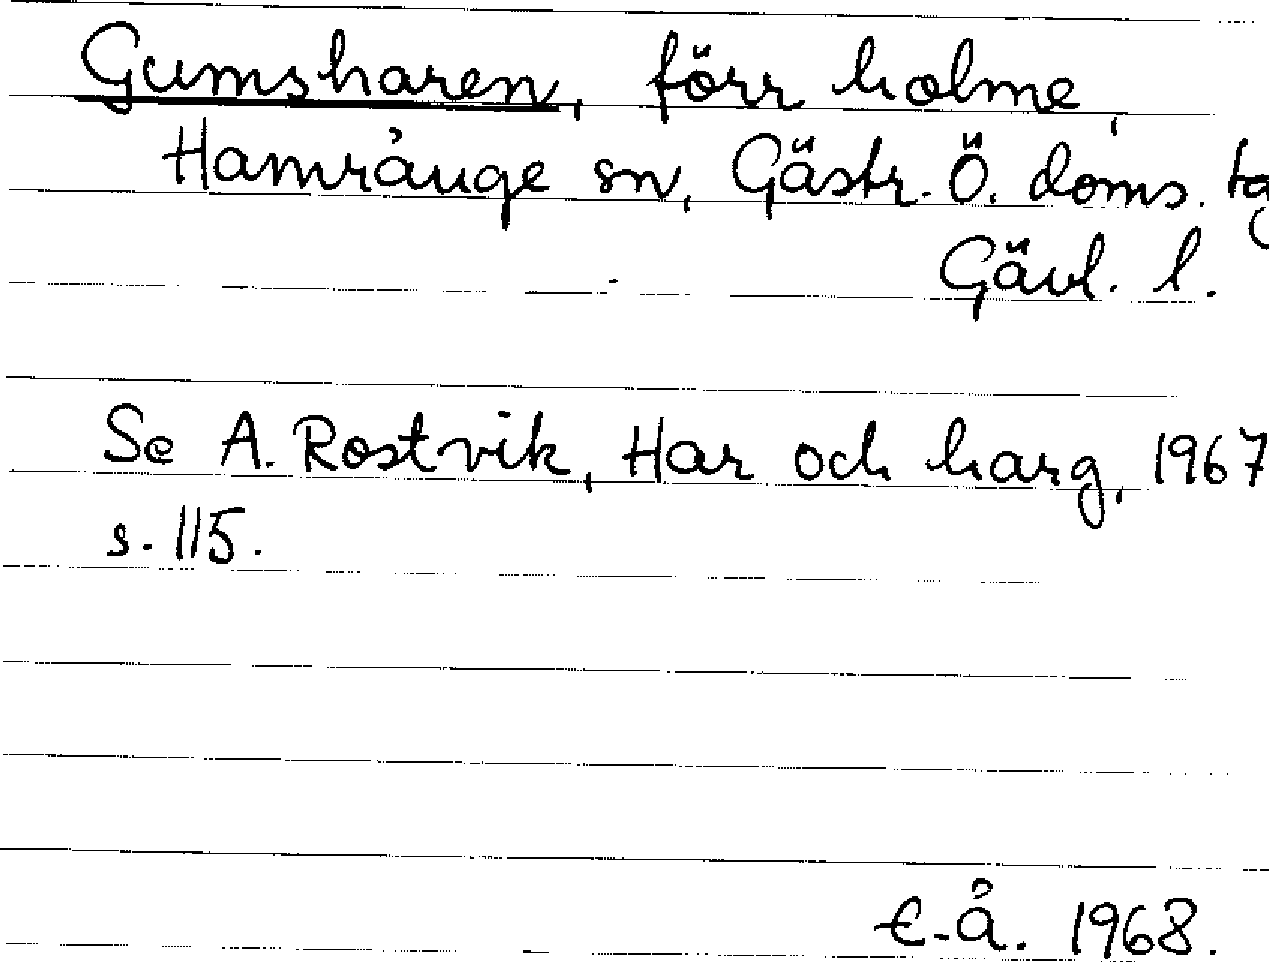 Gumsharen, förr holme,
Hamrånge sn, Gästr. Ö. doms. tg
Gävl. l.
Se A. Rostvik, Har och harg, 1967
s. 115.
E.Å. 1968.